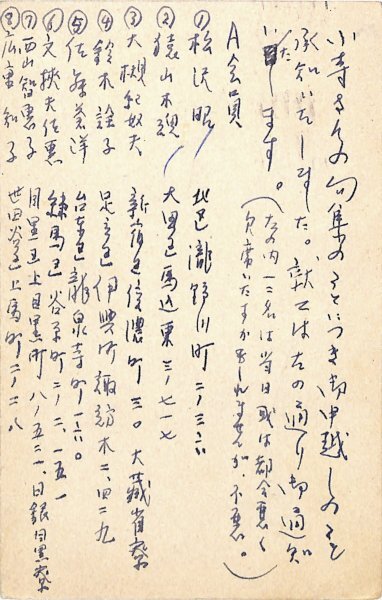 小寺さんの句集のことにつき御申越しのこと
承知いたしました。就ては左の通り御通知
いたします。
(左の内一二名は当日或は都合悪く
欠席いたすかもしれませんが、不悪。)
A会員
① 松沢昭 北区瀧野川町二ノ三六
② 猿山木魂 大田区馬込東三ノ七一七
③ 大槻紀奴夫 新宿区信濃町三〇 大蔵省寮
④ 鈴木詮子 足立区伊興町諏訪木二、四二九
⑤ 佐 蒼洋 台東区龍泉寺町一六〇
⑥ 佐恵 練馬区谷原町二ノ二、一五一
⑦ 西山智恵子 目黒区上目黒町八ノ五二一、日銀目黒寮
⑧ 子 世田谷区上馬町二ノ二八